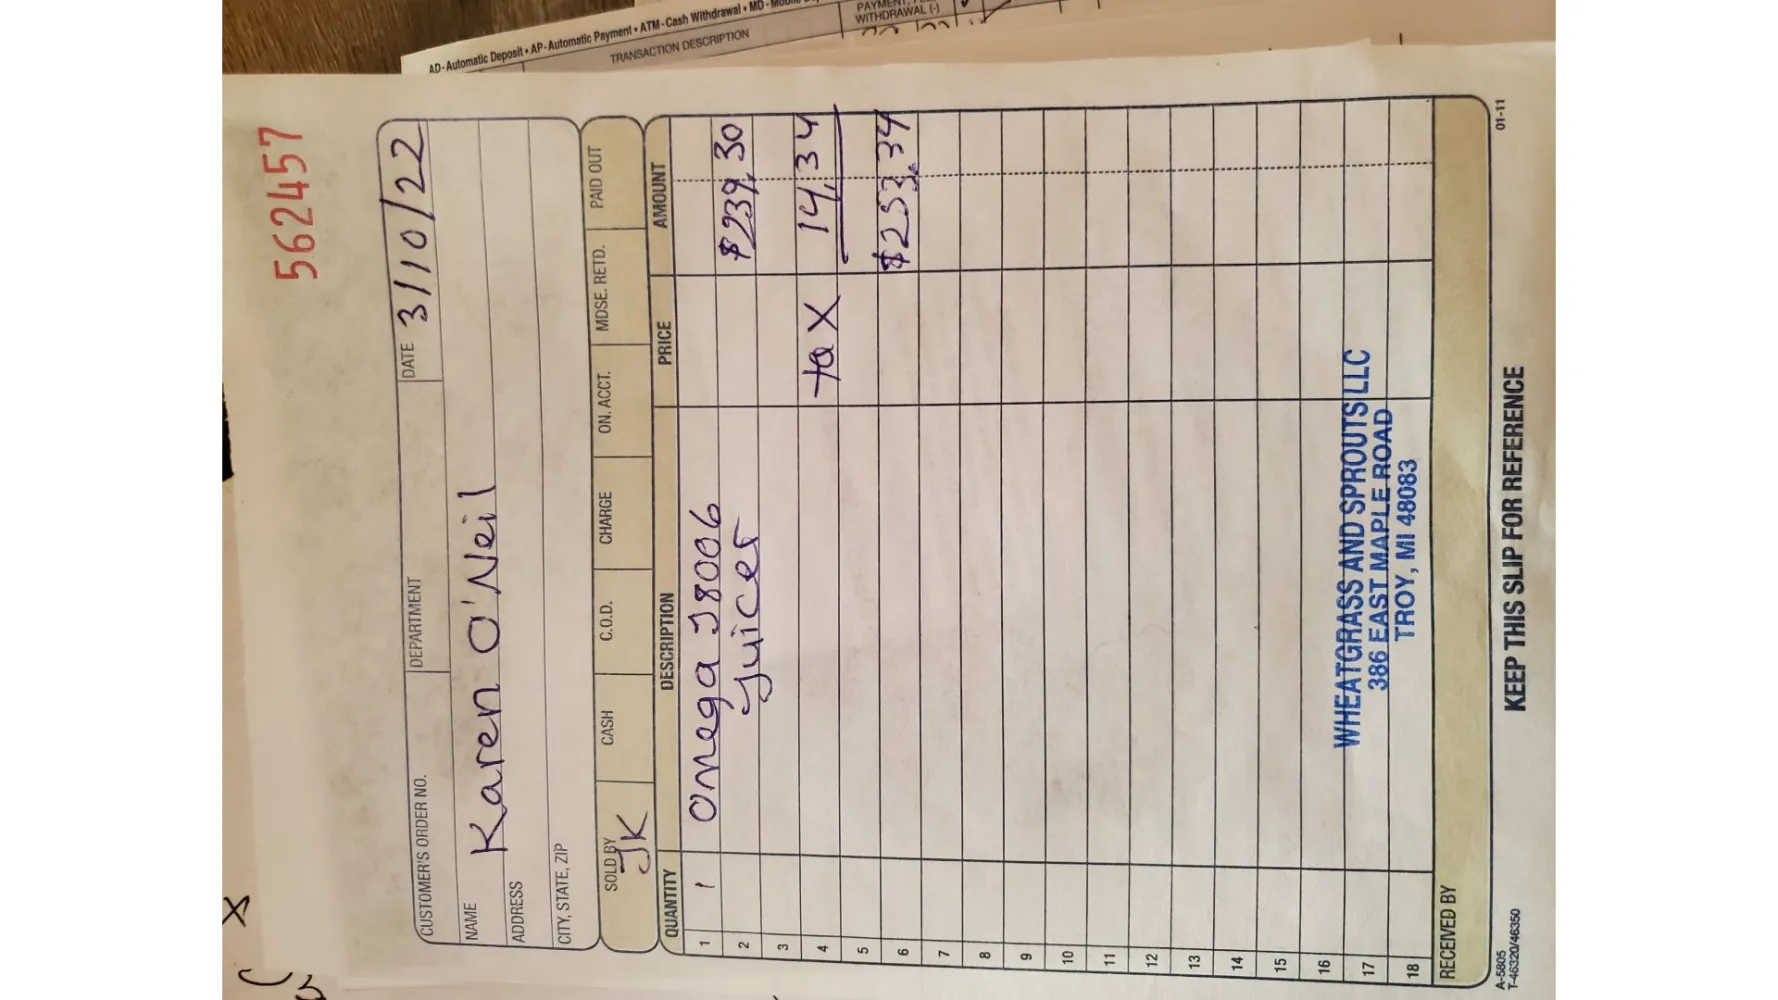 AD-Automatic Deposit • AP-Automatic Payment • ATM-Cash Withdrawal • MD-
TRANSACTION DESCRIPTION
WITHDRAWAL (-)
562457
CUSTOMER'S ORDER NO. DEPARTMENT DATE 3/10/22
NAME Karen O'Neil
ADDRESS
CITY, STATE, ZIP
SOLD BY JK CASH C.O.D. CHARGE ON. ACCT. MDSE. RETD. PAID OUT
QUANTITY DESCRIPTION PRICE AMOUNT
1 1 Omega J8006
2 Juicer $239.30
3
4 tax 14.34
5
6 $253.34
7
8
9
10
11
12
13
14
15
16 WHEATGRASS AND SPROUTS LLC
17 386 EAST MAPLE ROAD
18 TROY, MI 48083
RECEIVED BY
A-5805
T-46320/46350
KEEP THIS SLIP FOR REFERENCE
01-11